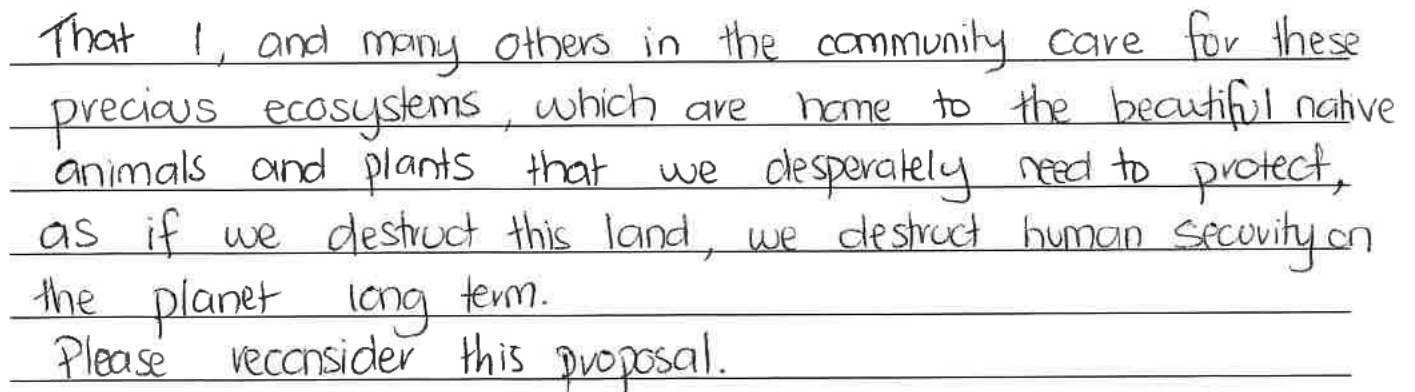 That I, and many others in the community care for these
precious ecosystems, which are home to the beautiful native
animals and plants that we desperately need to protect,
as if we destruct this land, we destruct human security on
the planet long term.
Please reconsider this proposal.